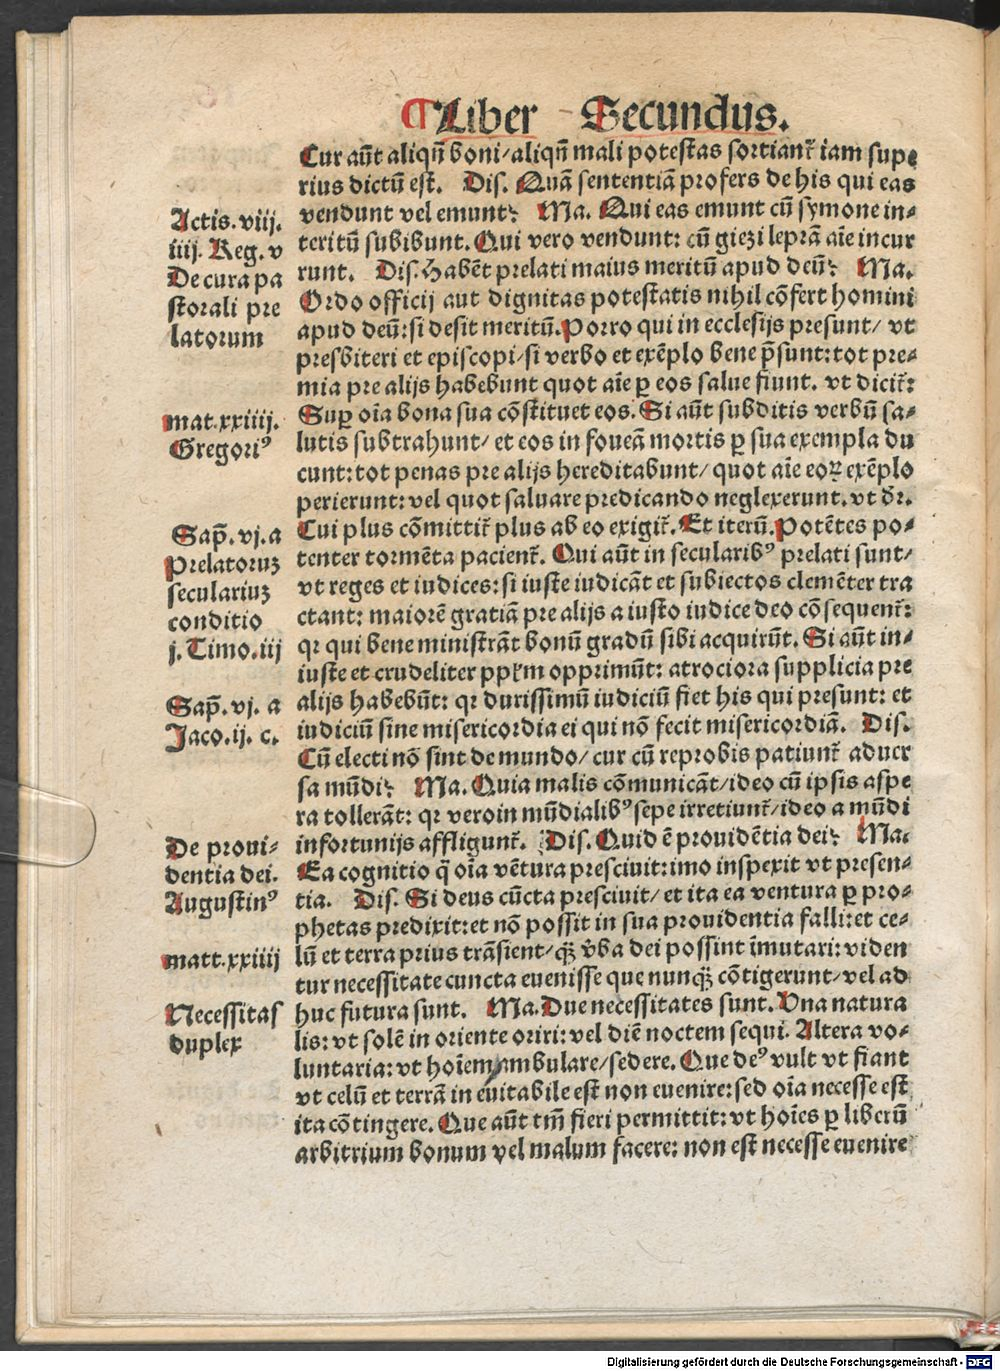 ¶Liber Secundus.
Cur aūt aliqñ boni/aliqñ mali potestas sortianť iam supe
rius dictū est. Dis. Quā sententiā profers de his qui eas
vendunt vel emunt? Ma. Qui eas emunt cū symone in⸗
teritū subibunt. Qui vero vendunt: cū giezi leprā aīe incur
runt. Dis. Habēt prelati maius meritū apud deū? Ma.
Ordo officij aut dignitas potestatis nihil cōfert homini
apud deū: si desit meritū. Porro qui in ecclesijs presunt/ vt
presbiteri et episcopi/si verbo et exēplo bene p̄sunt: tot pre⸗
mia pre alijs habebunt quot aīe ꝑ eos salue fiunt. vt diciť:
Suꝑ oīa bona sua cōstituet eos. Si aūt subditis verbū sa⸗
lutis subtrahunt/ et eos in foueā mortis ꝑ sua exempla du
cunt: tot penas pre alijs hereditabunt/ quot aīe eoꝝ exēplo
perierunt: vel quot saluare predicando neglexerunt. vt dr̄.
Cui plus cōmittiť plus ab eo exigiť. Et iterū. Potētes po⸗
tenter tormēta pacienť. Qui aūt in secularibꝰ prelati sunt/
vt reges et iudices: si iuste iudicāt et subiectos clemēter tra
ctant: maiorē gratiā pre alijs a iusto iudice deo cōsequenť:
qꝛ qui bene ministrāt bonū gradū sibi acquirūt. Si aūt in⸗
iuste et crudeliter ppľm opprimūt: atrociora supplicia pre
alijs habebūt: qꝛ durissimū iudiciū fiet his qui presunt: et
iudiciū sine misericordia ei qui nō fecit misericordiā. Dis.
Cū electi nō sint de mundo/ cur cū reprobis patiunť aduer
sa mūdi? Ma. Quia malis cōmunicāt/ideo cū ipsis aspe
ra tollerāt: qꝛ veroin mūdialibꝰ sepe irretiunť/ideo a mūdi
infortunijs affligunť. Dis. Quid ē prouidētia dei? Ma.
Ea cognitio q̄ oīa vētura presciuit: imo inspexit vt presen⸗
tia. Dis. Si deus cūcta presciuit/ et ita ea ventura ꝑ pro⸗
phetas predixit: et nō possit in sua prouidentia falli: et ce⸗
lū et terra prius trāsient/ qꝫ̄ v̄ba dei possint īmutari: viden
tur necessitate cuncta euenisse que nunqꝫ̄ cōtigerunt/ vel ad
huc futura sunt. Ma. Due necessitates sunt. Una natura
lis: vt solē in oriente oriri: vel diē noctem sequi. Altera vo⸗
luntaria: vt hoīem ambulare/ sedere. Que deꝰ vult vt fiant
vt celū et terrā in euitabile est non euenire: sed oīa necesse est
ita cōtingere. Que aūt tm̄ fieri permittit: vt hoīes ꝑ liberū
arbitrium bonum vel malum facere: non est necesse euenire
Actis. viij.
iiij. Reg. v
De cura pa
storali pre
latorum
mat. xxiiij.
Gregoriꝰ
Sap̄. vj. a
Prelatoruꝫ
seculariuꝫ
conditio
j. Timo. iij
Sap̄. vj. a
Jaco. ij. c.
De proui⸗
dentia dei.
Augustinꝰ
matt. xxiiij
Necessitas
duplex
Digitalisierung gefördert durch die Deutsche Forschungsgemeinschaft - DFG